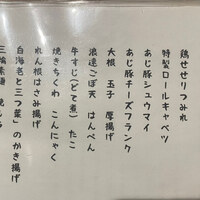 鶏せせりつみれ
特製ロールキャベツ
あじ豚シュウマイ
あじ豚チーズフランク
大根　玉子　厚揚げ
浪速ごぼ天　はんぺん
牛すじ(どて煮)　たこ
焼きちくわ　こんにゃく
れん根はさみ揚げ
白海老と三つ葉のかき揚げ